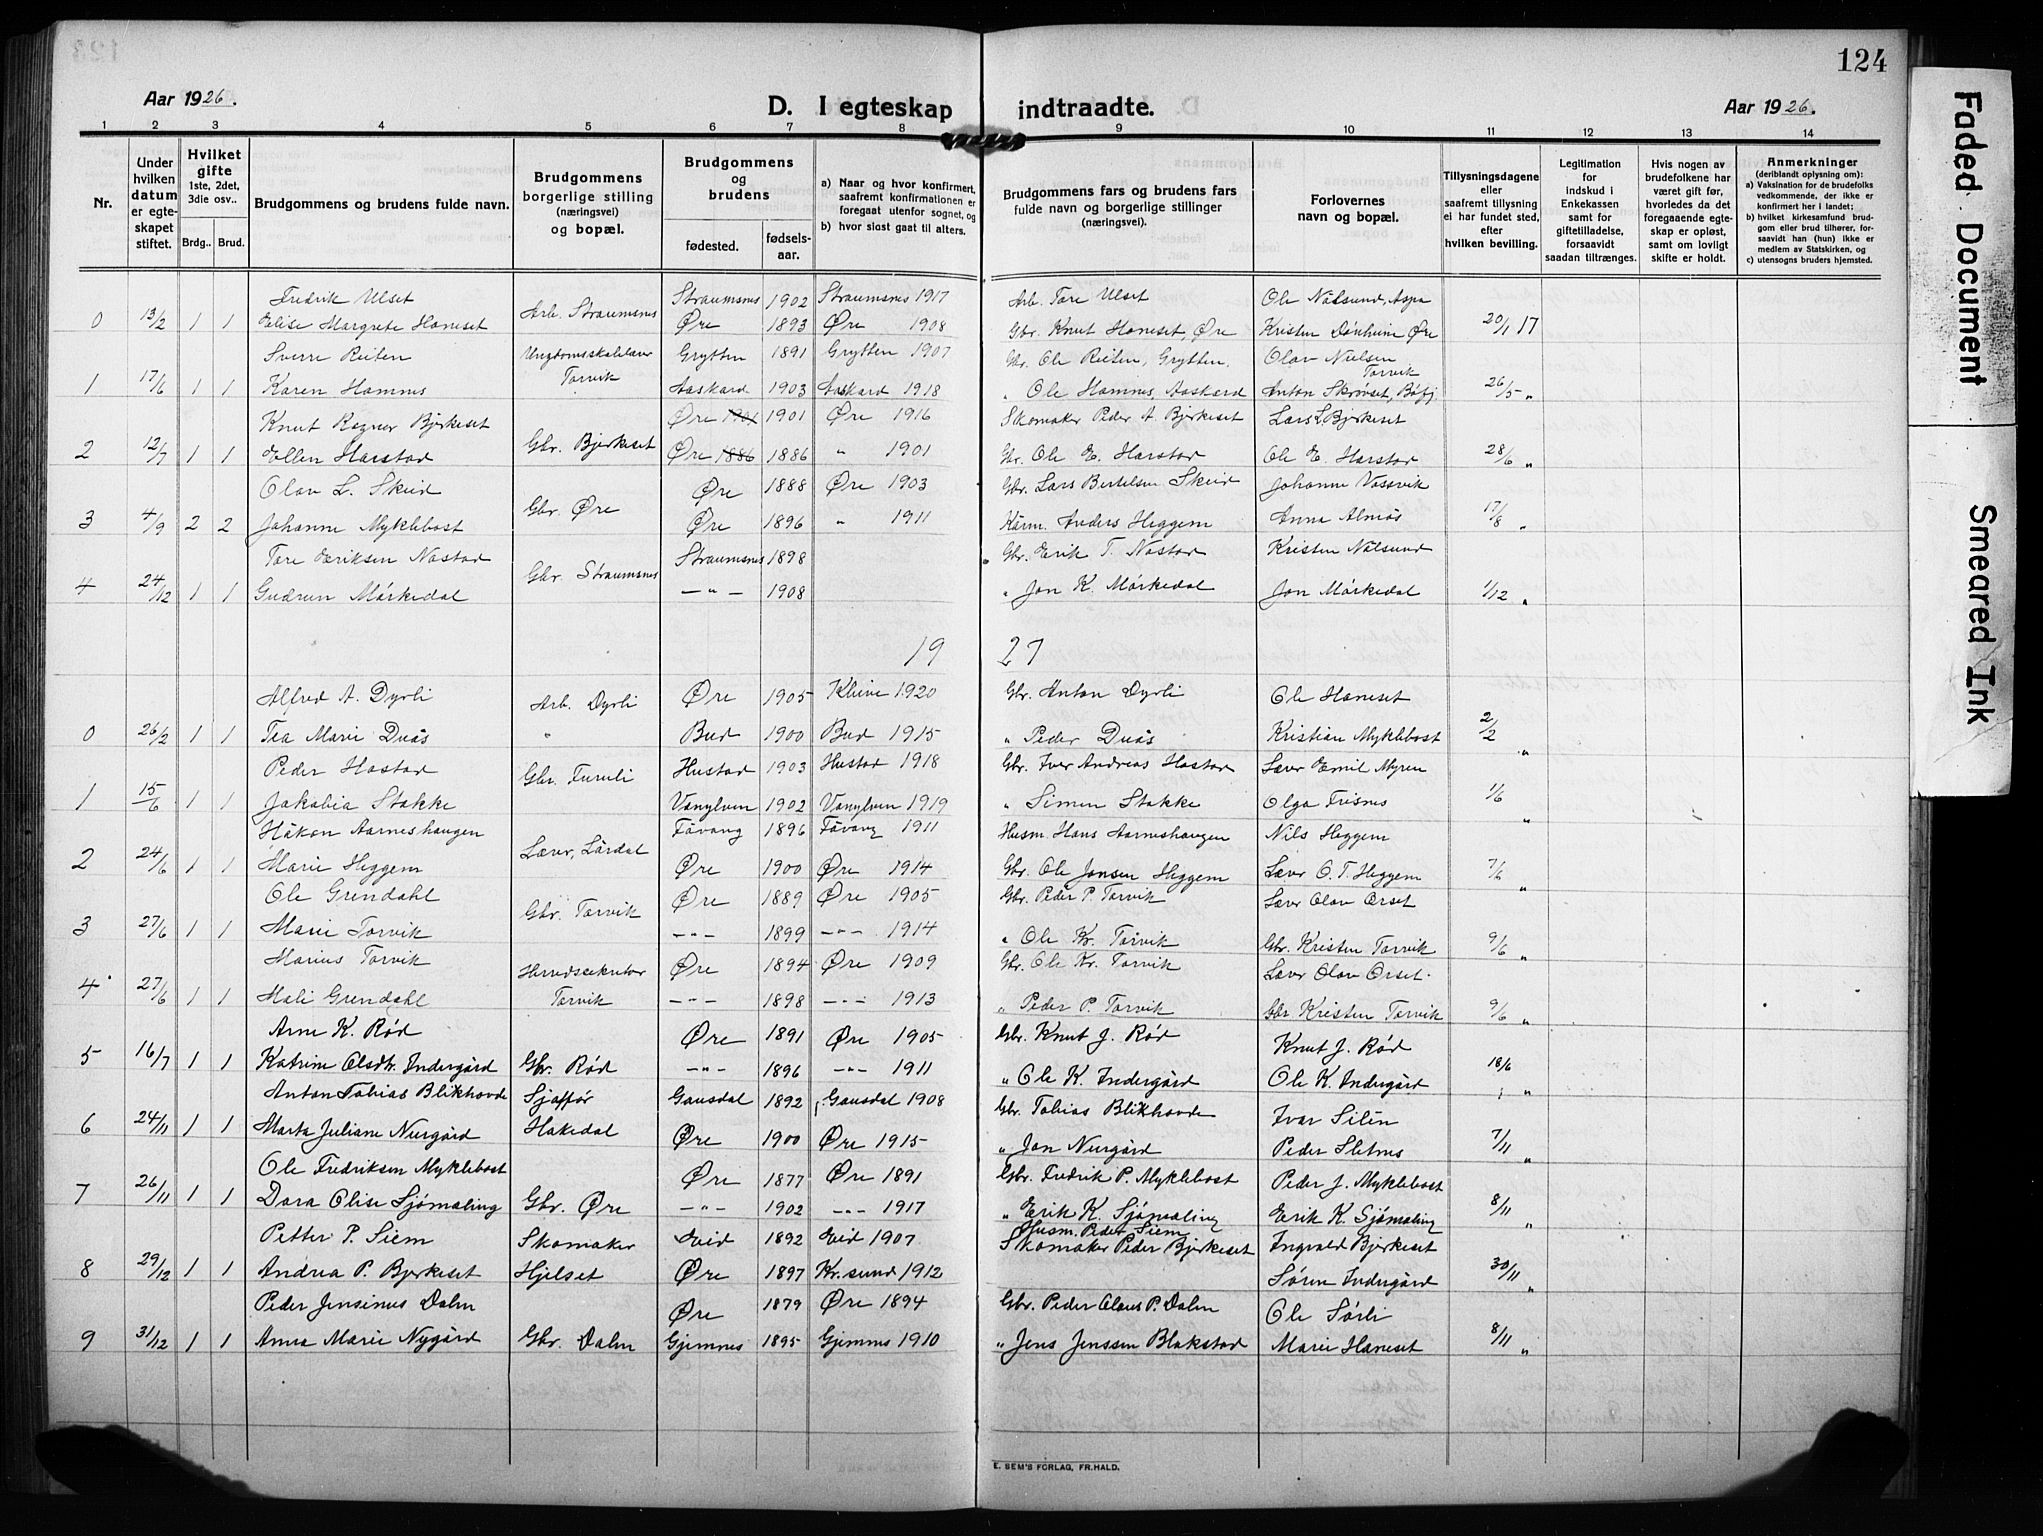 124
Aar 1926.
D. I egteskap indtraadte.
Aar 1926.
1 2 3 4 5 6 7 8 9 10 11 12 13 14
Nr.
Under hvilken datum er egteskapet stiftet.
Hvilket gifte 1ste, 2det, 3die osv..
Brdg.. Brud.
Brudgommens og brudens fulde navn.
Brudgommens borgerlige stilling (næringsvei) og bopæl.
Brudgommens og brudens
fødested. fødselsaar.
a) Naar og hvor konfirmert, saafremt konfirmationen er foregaat utenfor sognet, og
b) hvor sidst gaat til alters.
Brudgommens fars og brudens fars fulde navn og borgerlige stillinger (næringsvei).
Forlovernes navn og bopæl.
Tillysningsdagene eller saafremt tillysning ei har fundet sted, efter hvilken bevilling.
Legitimation for indskud i Enkekassen samt for giftetilladelse, forsaavidt saadan tiltrænges.
Hvis nogen av brudefolkene har været gift før, hvorledes da det foregaaende egteskap er opløst, samt om lovligt skifte er holdt.
Anmerkninger (deriblandt oplysning om):
a) Vaksination for de brudefolks vedkommende, der ikke er konfirmert her i landet;
b) hvilket kirkesamfund brudgom eller brud tilhører, forsaavidt han (hun) ikke er medlem av Statskirken, og
c) utensogns bruders hjemsted.
Fredrik Ulset Arb. Straumsnes Straumsnes 1902 Straumsnes 1917 Arb. Tore Ulset Ole Nålsund, Aspa
0 13/2 1 1 Elise Margrete Haneset Øre 1893 Øre 1908 Gbr. Knut Haneset, Øre Kristen Dønheim Øre 20/1 17
Sverre Reiten Ungdomsskolelærer Grytten 1891 Grytten 1907 Gbr. Ole Reiten, Grytten Olav Nielsen Torvik
1 17/6 1 1 Karen Hamnes Torvik Aaskard 1903 Aaskard 1918 " Ole Hamnes, Aaskard Anton Skrøvset, Bøfj 26/5 "
Knut Ragnar Bjerkeset Øre 1901 1901 Øre 1916 Skomaker Peder A. Bjerkeset Lars L Bjerkeset
2 12/7 1 1 Ellen Harstad Gbr. Bjerkeset Øre 1886 1886 " 1901 Gbr. Ole E. Harstad Ole E. Harstad 28/6 "
Olav L. Skeid Øre 1888 Øre 1903 Gbr. Lars Bertelsen Skeid Johanne Vassvik
3 4/9 2 2 Johanne Myklebost Gbr. Øre Øre 1896 " 1911 Kårm. Anders Heggem Anna Almås 17/8 "
Tore Eriksen Nastad Straumsnes 1898 Gbr. Erik T. Nastad Kristen Nålsund
4 24/12 1 1 Gudrun Mørkedal Gbr. Straumsnes -"- 1908 " Jon K. Mørkedal Jon Mørkedal 1/12 "
19 27
Alfred A. Dyrli Arb. Dyrli Øre 1905 Kleive 1920 Gbr. Anton Dyrli Ole Haneset
0 26/2 1 1 Tea Marie Duås " Bud 1900 Bud 1915 " Peder Duås Kristian Myklebost 2/2 "
Peder Hostad Gbr. Furuli Hustad 1903 Hustad 1918 Gbr. Iver Andreas Hostad Lærer Emil Myren
1 15/6 1 1 Jakobia Stokke Vanylven 1902 Vanylven 1919 " Simen Stokke Olga Tresnes 1/6 "
Håkon Aarneshaugen Lærer, Lårdal Fåvang 1896 Fåvang 1911 Husm. Hans Aarneshaugen Nils Heggem
2 24/6 1 1 Marie Heggem Øre 1900 Øre 1914 Gbr. Ole Jonsen Heggem Lærer O. T. Heggem 7/6 "
Ole Grendahl Gbr. Torvik Øre 1889 Øre 1905 Gbr. Peder P. Torvik Lærer Olav Orset
3 27/6 1 1 Marie Torvik -"- 1899 -"- 1914 " Ole Kr. Torvik Gbr. Kristen Torvik 9/6 "
Marius Torvik Herredssekretær Øre 1894 Øre 1909 Gbr. Ole Kr. Torvik Lærer Olav Orset
4 27/6 1 1 Mali Grendahl Torvik -"- 1898 -"- 1913 " Peder P. Torvik Gbr Kristen Torvik 9/6 "
Arne K. Rød Øre 1891 Øre 1905 Gbr. Knut J. Rød Knut J. Rød
5 16/7 1 1 Katrine Olsdtr. Indergård Gbr. Rød -"- 1896 -"- 1911 " Ole K. Indergård Ole K. Indergård 18/6 "
Anton Tobias Blikhovde Sjåffør Gausdal 1892 Gausdal 1908 Gbr. Tobias Blikhovde Ivar Silén
6 24/11 1 1 Marta Juliane Nergård Hakedal Øre 1900 Øre 1915 " Jon Nergård Peder Sletnes 7/11 "
Ole Fredriksen Myklebost Øre 1877 Øre 1891 Gbr. Fredrik P. Myklebost Peder J. Myklebost
7 26/11 1 1 Dora Elise Sjømæling Gbr. Øre -"- 1902 -"- 1917 " Erik K. Sjømæling Erik K Sjømæling 8/11 "
Petter P. Siem Skomaker Eid 1892 Eid 1907 Husm. Peder Siem Ingvald Bjerkeset
8 29/12 1 1 Andrea P. Bjerkeset Hjelset Øre 1897 Kr.sund 1912 Skomaker Peder Bjerkeset Søren Indergård 30/11 "
Peder Jensinus Dalen Øre 1879 Øre 1894 Gbr. Peder Claus P. Dalen Ole Sørli
9 31/12 1 1 Anna Marie Nygård Gbr. Dalen Gjemnes 1895 Gjemnes 1910 " Jens Jenssen Blakstad Marie Haneset 8/11 "
E. SEM'S FORLAG, FR.HALD.
Faded Document
Smeared Ink